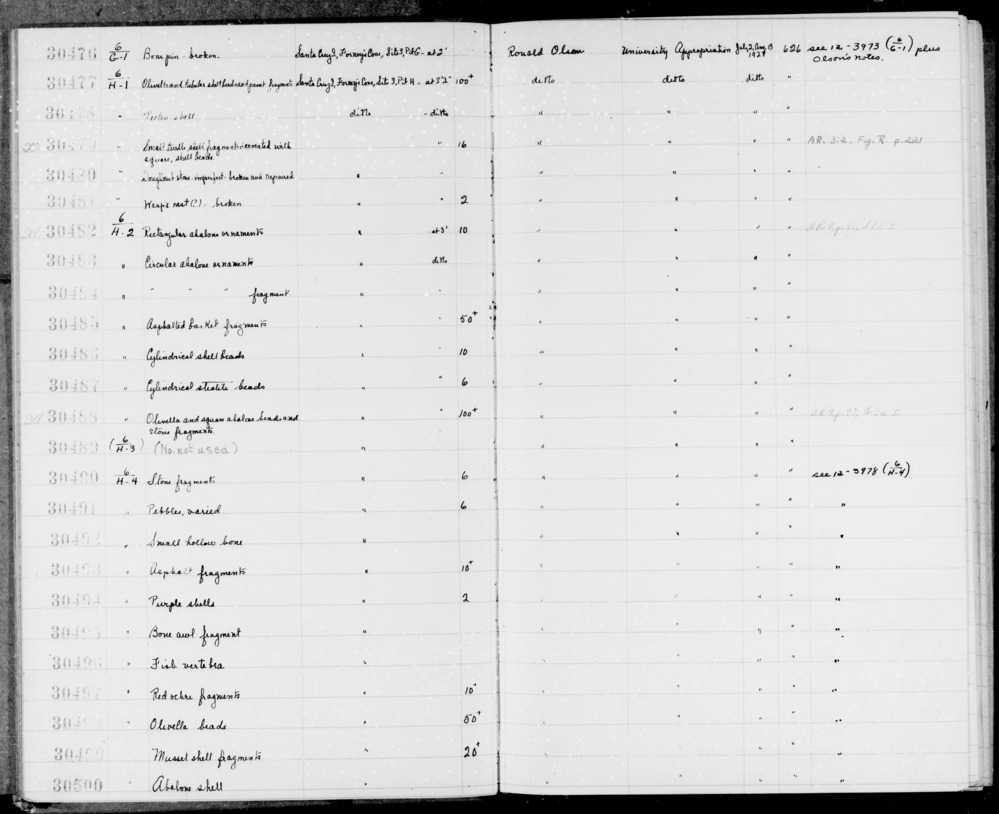 30476 6/G-1 Bone pin - broken. Santa Cruz I, Forney's Cove, Site 3, Pit G - at 2' Ronald Olson University Appropriation July 2, Aug. 13 1927 626 see 12-3973 (6/G-1) plus Olson's notes.
30477 6/H-1 Olivella and tubular shell beads and paint fragments Santa Cruz I, Forney's Cove, Site 3, Pit H - at 3'2" 100+ ditto ditto ditto "
30478 " Pecten shell ditto - ditto " " " "
30479 " Small turtle shell fragments decorated with square, shell beads " 16 " " " " AR. 3:2, Fig. R. p.221
30480 " Doughnut stone - imperfect - broken and repaired " " " " " "
30481 " Wasp's nest (?). broken " " 2 " " " "
30482 6/H-2 Rectangular abalone ornaments " at 3' 10 " " " "
30483 " Circular abalone ornaments " ditto " " " "
30484 " " " " fragment " " " " " "
30485 " Asphalted basket fragments " " 50+ " " " "
30486 " Cylindrical shell beads " 10 " " " "
30487 " Cylindrical steatite beads " " 6 " " " "
30488 " Olivella and square abalone beads and stone fragments. " " 100+ " " " "
30489 (6/H-3) (No. not used) " " " " "
30490 6/H-4 Stone fragments " 6 " " " " see 12-3978 (6/H-4)
30491 " Pebbles, varied " 6 " " " " "
30492 " Small hollow bone " " " " " "
30493 " Asphalt fragments " 10+ " " " " "
30494 " Purple shells " 2 " " " " "
30495 " Bone awl fragment " " " " " "
30496 " Fish vertebra " " " " " "
30497 " Red ochre fragments " 10+ " " " " "
30498 " Olivella beads " 50+ " " " " "
30499 " Mussel shell fragments " 20+ " " " " "
30500 " Abalone shell " " " " " "